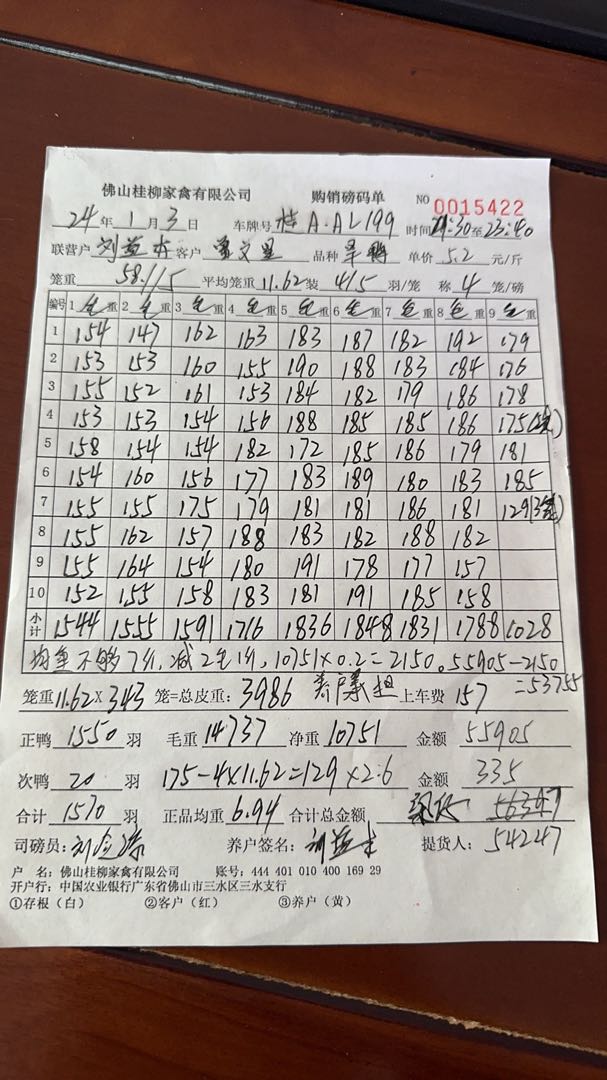 佛山桂柳家禽有限公司 购销磅码单 NO 0015422
24年1月3日 车牌号 桂A.AL199 时间21:30至23:40
联营户 客户 品种 旱鸭 单价 5.2 元/斤
笼重 58.1/5 平均笼重11.62装 4/5 羽/笼 称 4 笼/磅
编号 1毛重 2毛重 3毛重 4毛重 5毛重 6毛重 7毛重 8毛重 9毛重
1 154 147 162 163 183 187 182 192 179
2 153 153 160 155 190 188 183 184 176
3 155 152 161 153 184 182 179 186 178
4 153 153 154 156 188 185 185 186 175
5 158 154 154 182 172 185 186 179 181
6 154 160 156 177 183 189 180 183 185
7 155 155 175 179 181 181 186 181 129(3笼)
8 155 162 157 188 183 182 188 182
9 155 164 154 180 191 178 177 157
10 152 155 158 183 181 191 185 158
小计 1544 1555 1591 1716 1836 1848 1831 1788 1028
均重不够7斤,减2毛1斤,10751×0.2=2150。55905-2150
=53755
笼重11.62× 343 笼=总皮重: 3986 养户承担 上车费 157
正鸭 1550 羽 毛重 14737 净重 10751 金额 55905
次鸭 20 羽 175-4×11.62=129×2.6 金额 335
合计 1570 羽 正品均重 6.94 合计总金额 56397
司磅员: 养户签名: 提货人: 54247
户 名: 佛山桂柳家禽有限公司 账号: 444 401 010 400 169 29
开户行: 中国农业银行广东省佛山市三水区三水支行
①存根(白) ②客户(红) ③养户(黄)